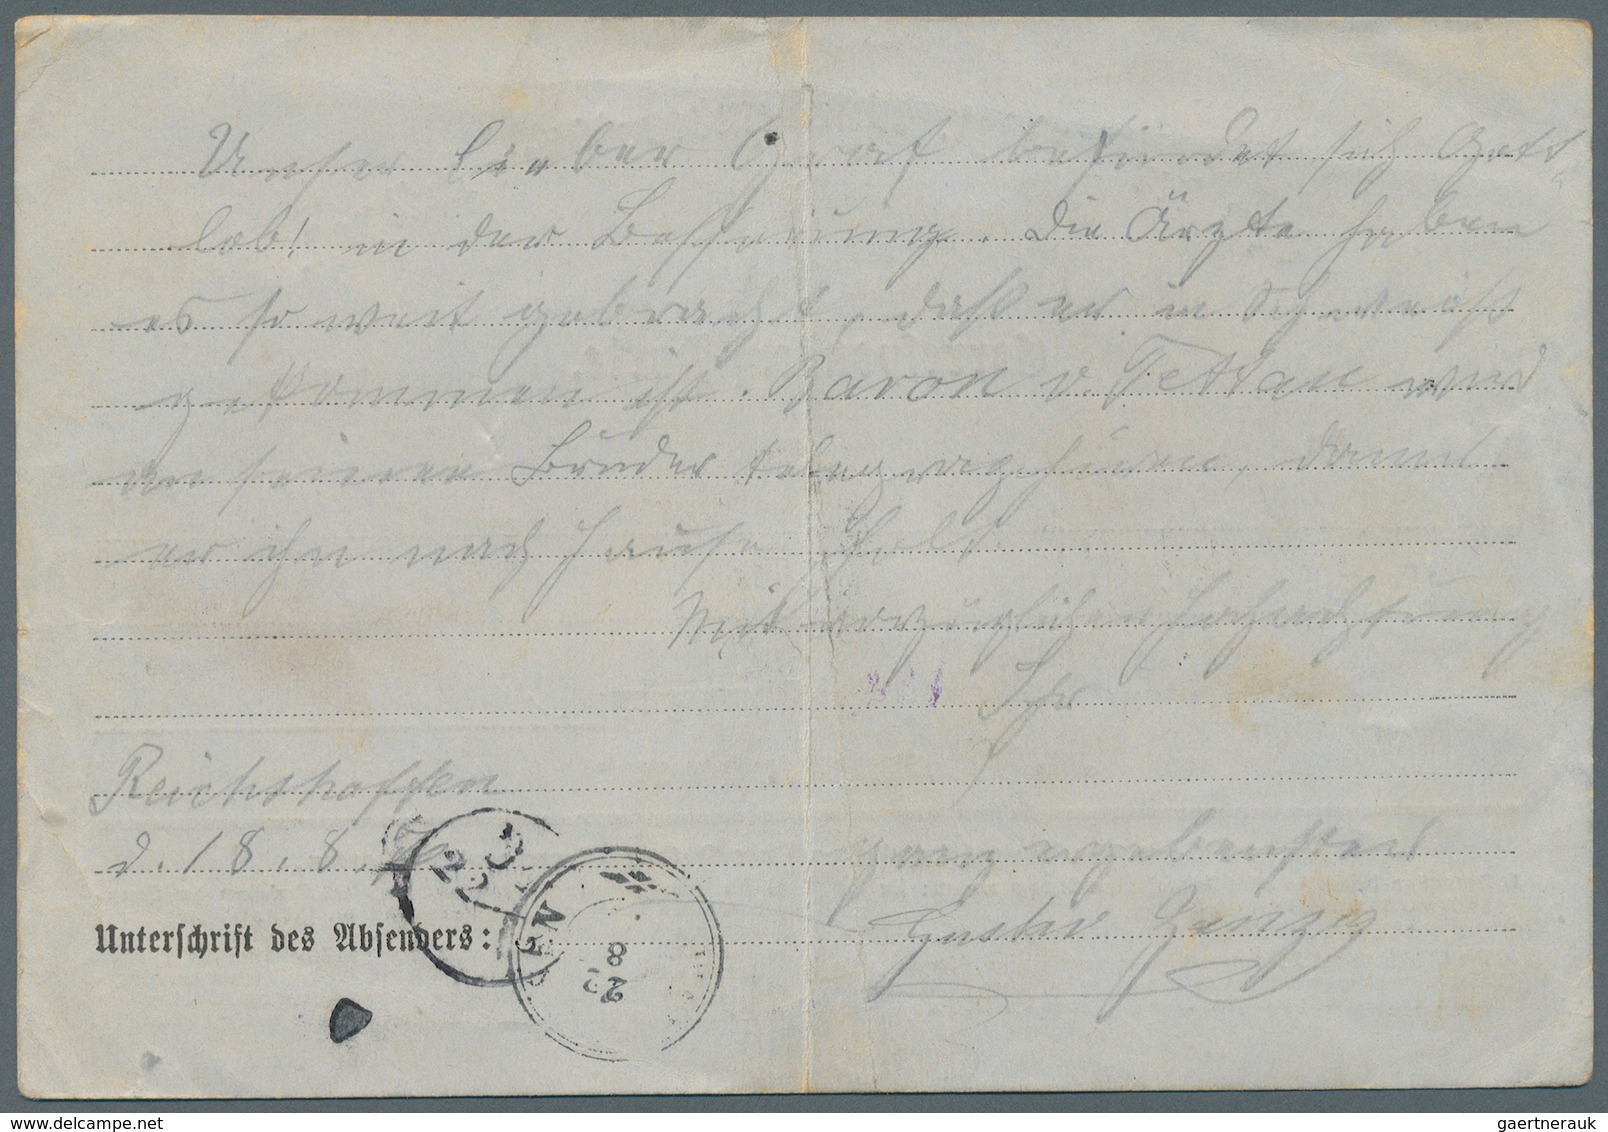 Unser lieber Graf befindet sich Gott
lob! in der Besserung. Die Ärzte haben
es so weit gebracht, daß er in Schweiß
gekommen ist. Baron v. Tettau wird
an seinen Bruder telegraphieren, damit
er ihn nach Hause holt.
Mit vorzüglicher Hochachtung
Ihr
Reichshoffen
d. 18. 8.
ganz ergebenster
Unterschrift des Absenders: Gustav
22
8
gaertnerauk